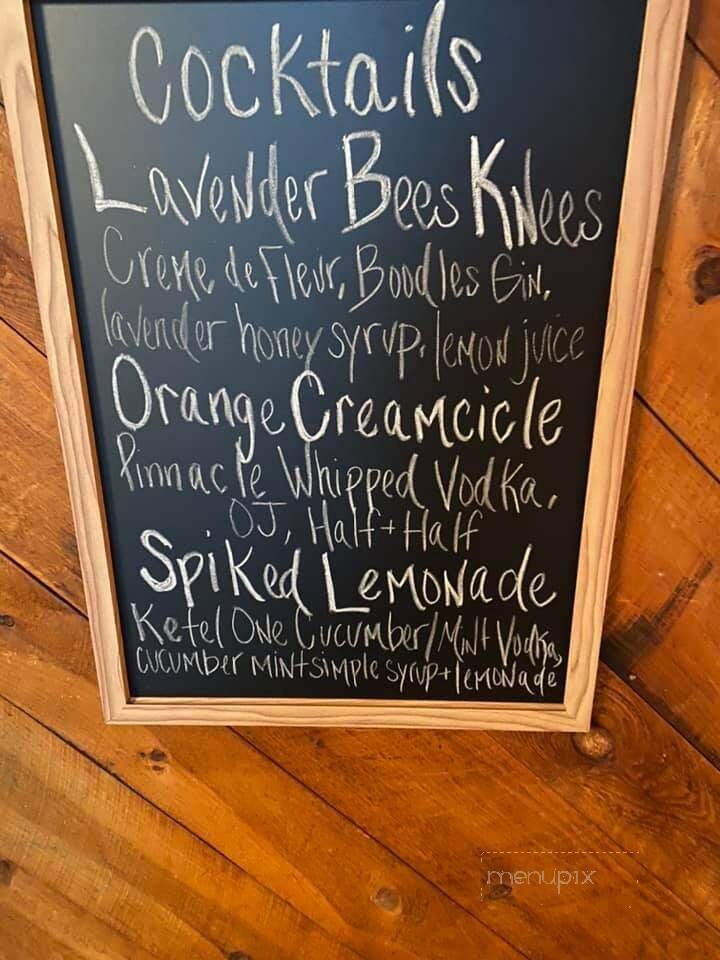 Cocktails
Lavender Bees Knees
Creme de Fleur, Boodles Gin,
lavender honey syrup, lemon juice
Orange Creamcicle
Pinnacle Whipped Vodka,
OJ, Half + Half
Spiked Lemonade
Ketel One Cucumber/Mint Vodka,
cucumber mint simple syrup + lemonade
menupix